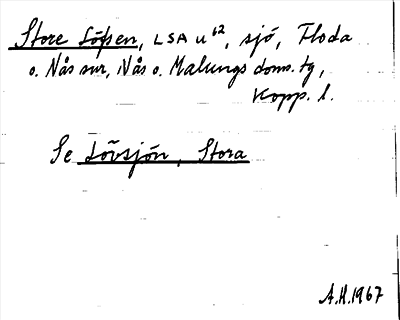 Store Löfsen, LSA u 62, sjö, Floda
o. Nås snr, Nås o. Malungs doms. tg,
Kopp. l.
Se Lövsjön, Stora
A.H. 1967